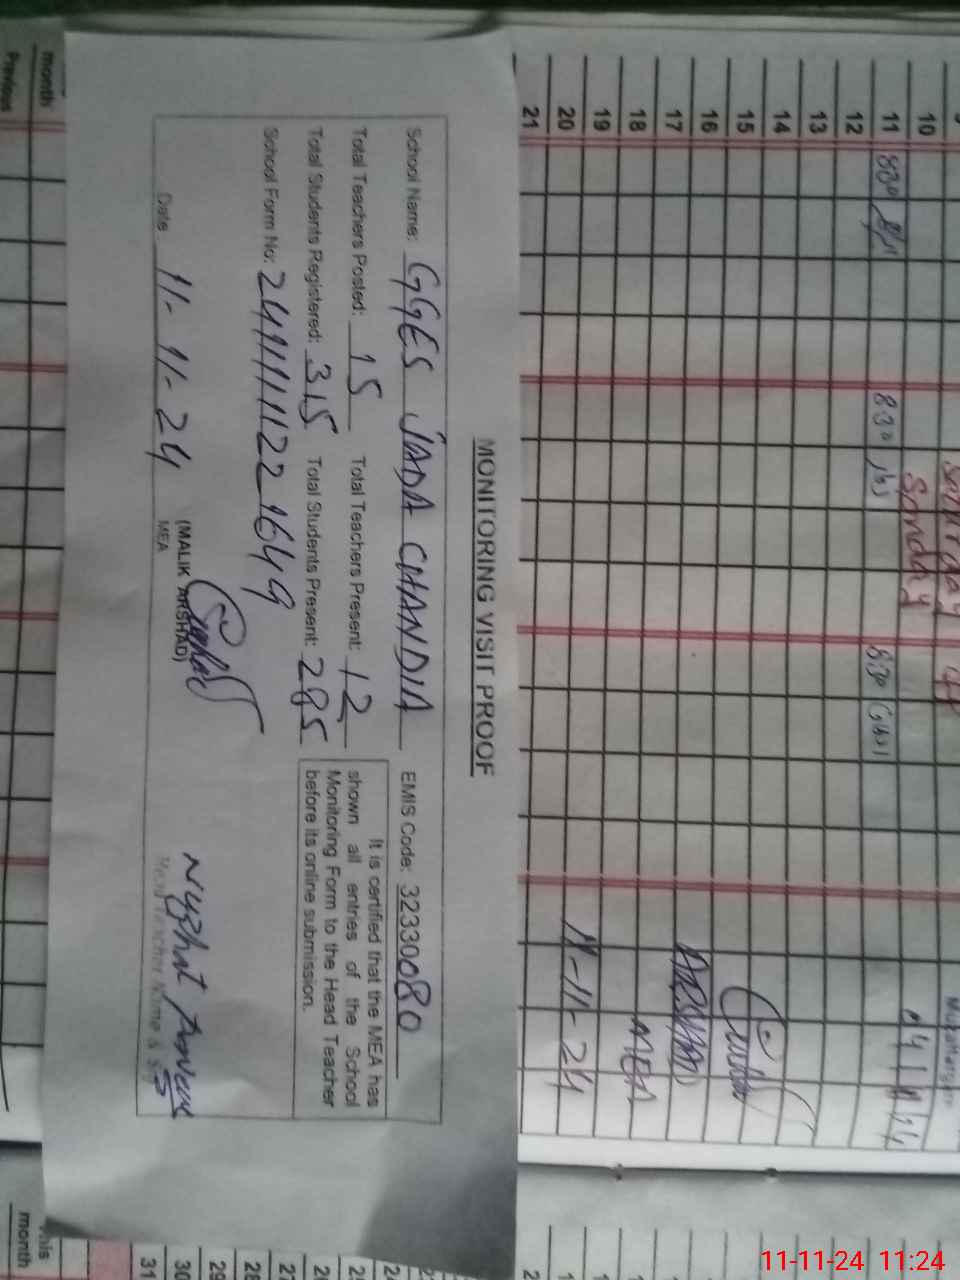 MONITORING VISIT PROOF
School Name: GGES JADA CHANDIA EMIS Code: 32330080
Total Teachers Posted: 15 Total Teachers Present: 12
Total Students Registered: 315 Total Students Present: 285
It is certified that the MEA has
shown all entries of the School
Monitoring Form to the Head Teacher
before its online submission.
School Form No:
Date 11-11-24
(MALIK ARSHAD)
MEA
month
Previous
10
11 8:30 8:30 8:30
12
13
14
15
16
17 ARSHAD
18 MEA
19
20 11-11-24
21
Saturday
Sunday
month
31
30
29
28
27
11-11-24 11:24